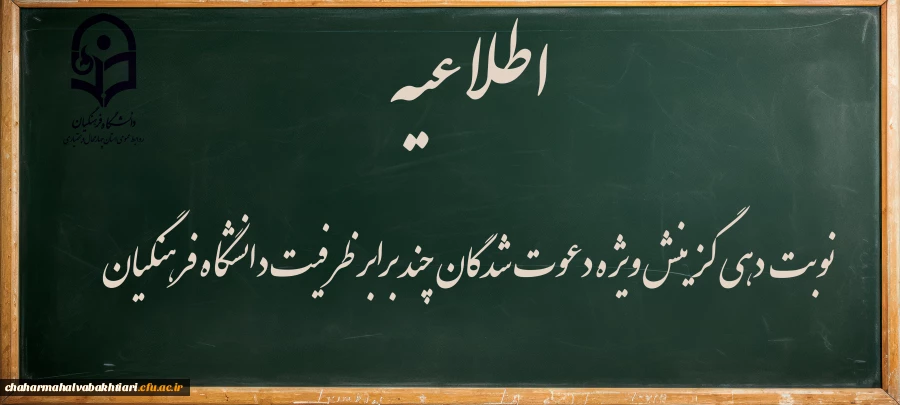 اطلاعیه
دانشگاه فرهنگیان
نوبت دهی گزینش ویژه دعوت شدگان چندبرابر ظرفیت دانشگاه فرهنگیان
chaharmahalvabakhtiari.cfu.ac.ir